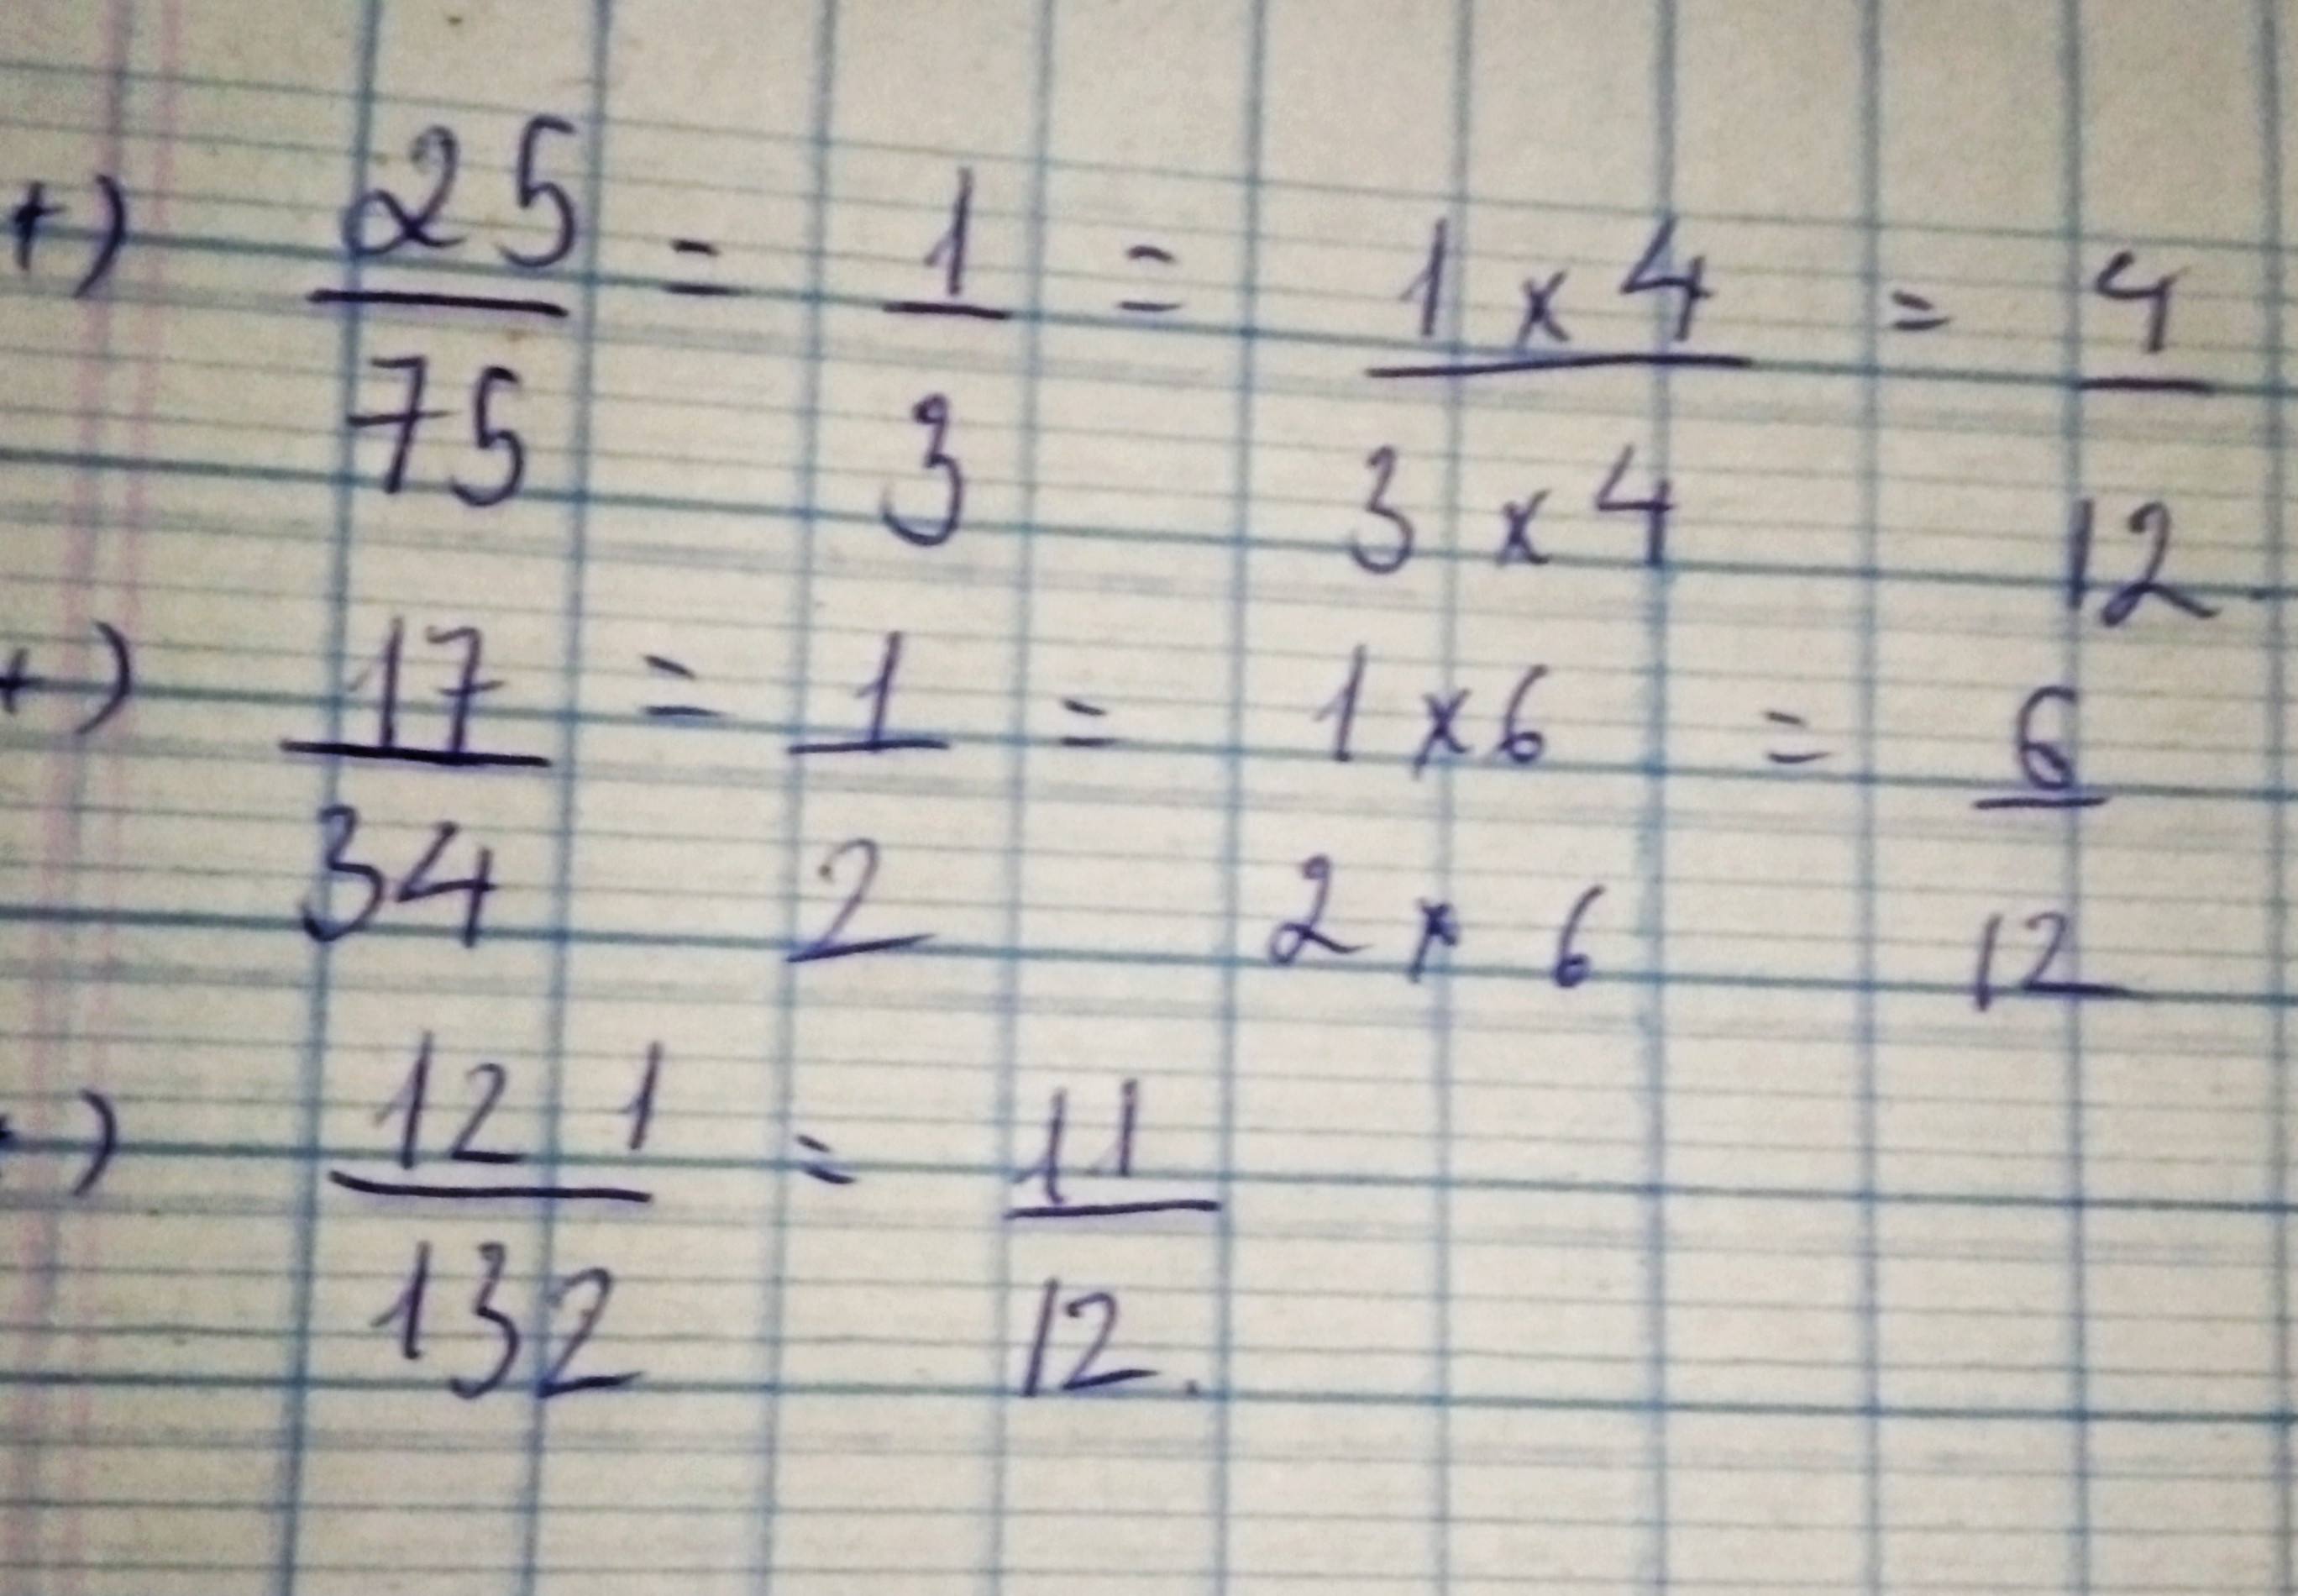 +) 25/75 = 1/3 = 1 x 4/3 x 4 = 4/12
+) 17/34 = 1/2 = 1 x 6 2 x 6 = 6/12
+) 121/132 = 11/12.